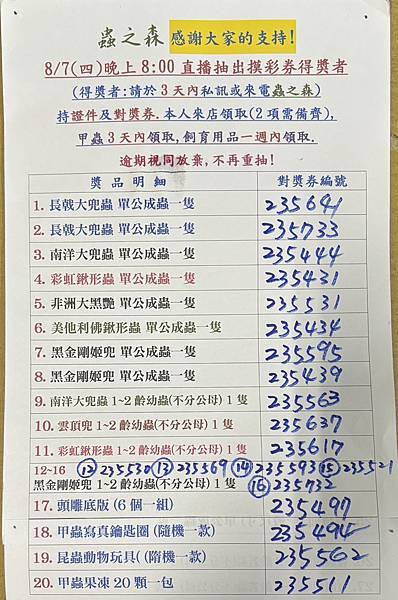 蟲之森 感謝大家的支持!
8/7(四)晚上 8:00 直播抽出摸彩券得獎者
(得獎者:請於 3 天內私訊或來電蟲之森)
持證件及對獎券.本人來店領取(2 項需備齊),
甲蟲 3 天內領取,飼育用品一週內領取.
逾期視同放棄,不再重抽!
獎品明細 對獎券編號
1. 長戟大兜蟲 單公成蟲一隻 235641
2. 長戟大兜蟲 單公成蟲一隻 235733
3. 南洋大兜蟲 單公成蟲一隻 235444
4. 彩虹鍬形蟲 單公成蟲一隻 235431
5. 非洲大黑艷 單公成蟲一隻 235531
6. 美他利佛鍬形蟲 單公成蟲一隻 235434
7. 黑金剛姬兜 單公成蟲一隻 235595
8. 黑金剛姬兜 單公成蟲一隻 235439
9. 南洋大兜蟲 1~2 齡幼蟲(不分公母) 1 隻 235563
10. 雲頂兜 1~2 齡幼蟲(不分公母) 1 隻 235637
11. 彩虹鍬形蟲 1~2 齡幼蟲(不分公母) 1 隻 235617
12~16 ⑫ 235530 ⑬ 235569 ⑭ 235593 ⑮ 235521
黑金剛姬兜 1~2 齡幼蟲(不分公母) 1 隻 ⑯ 235732
17. 頭雕底版 (6 個一組) 235497
18. 甲蟲寫真鑰匙圈 (隨機一款) 235494
19. 昆蟲動物玩具( (隨機一款) 235562
20. 甲蟲果凍 20 顆一包 235511